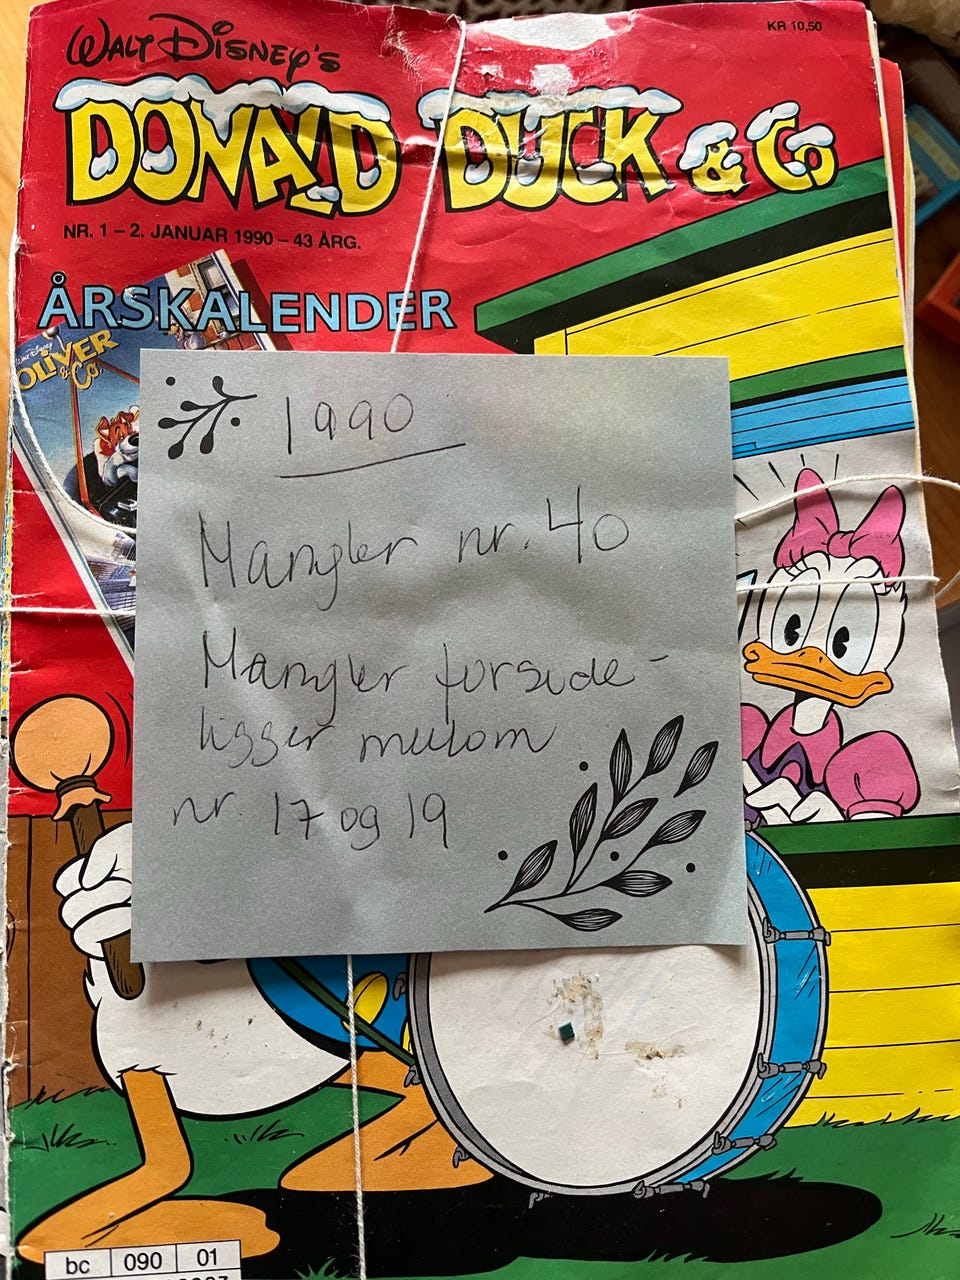 WALT DISNEY'S
KR 10,50
DONALD DUCK & Co
NR. 1 – 2. JANUAR 1990 – 43 ÅRG.
ÅRSKALENDER
WALT DISNEY
OLIVER
& Co.
1990
Mangler nr. 40
Mangler forside -
ligger mellom
nr. 17 og 19
bc 090 01